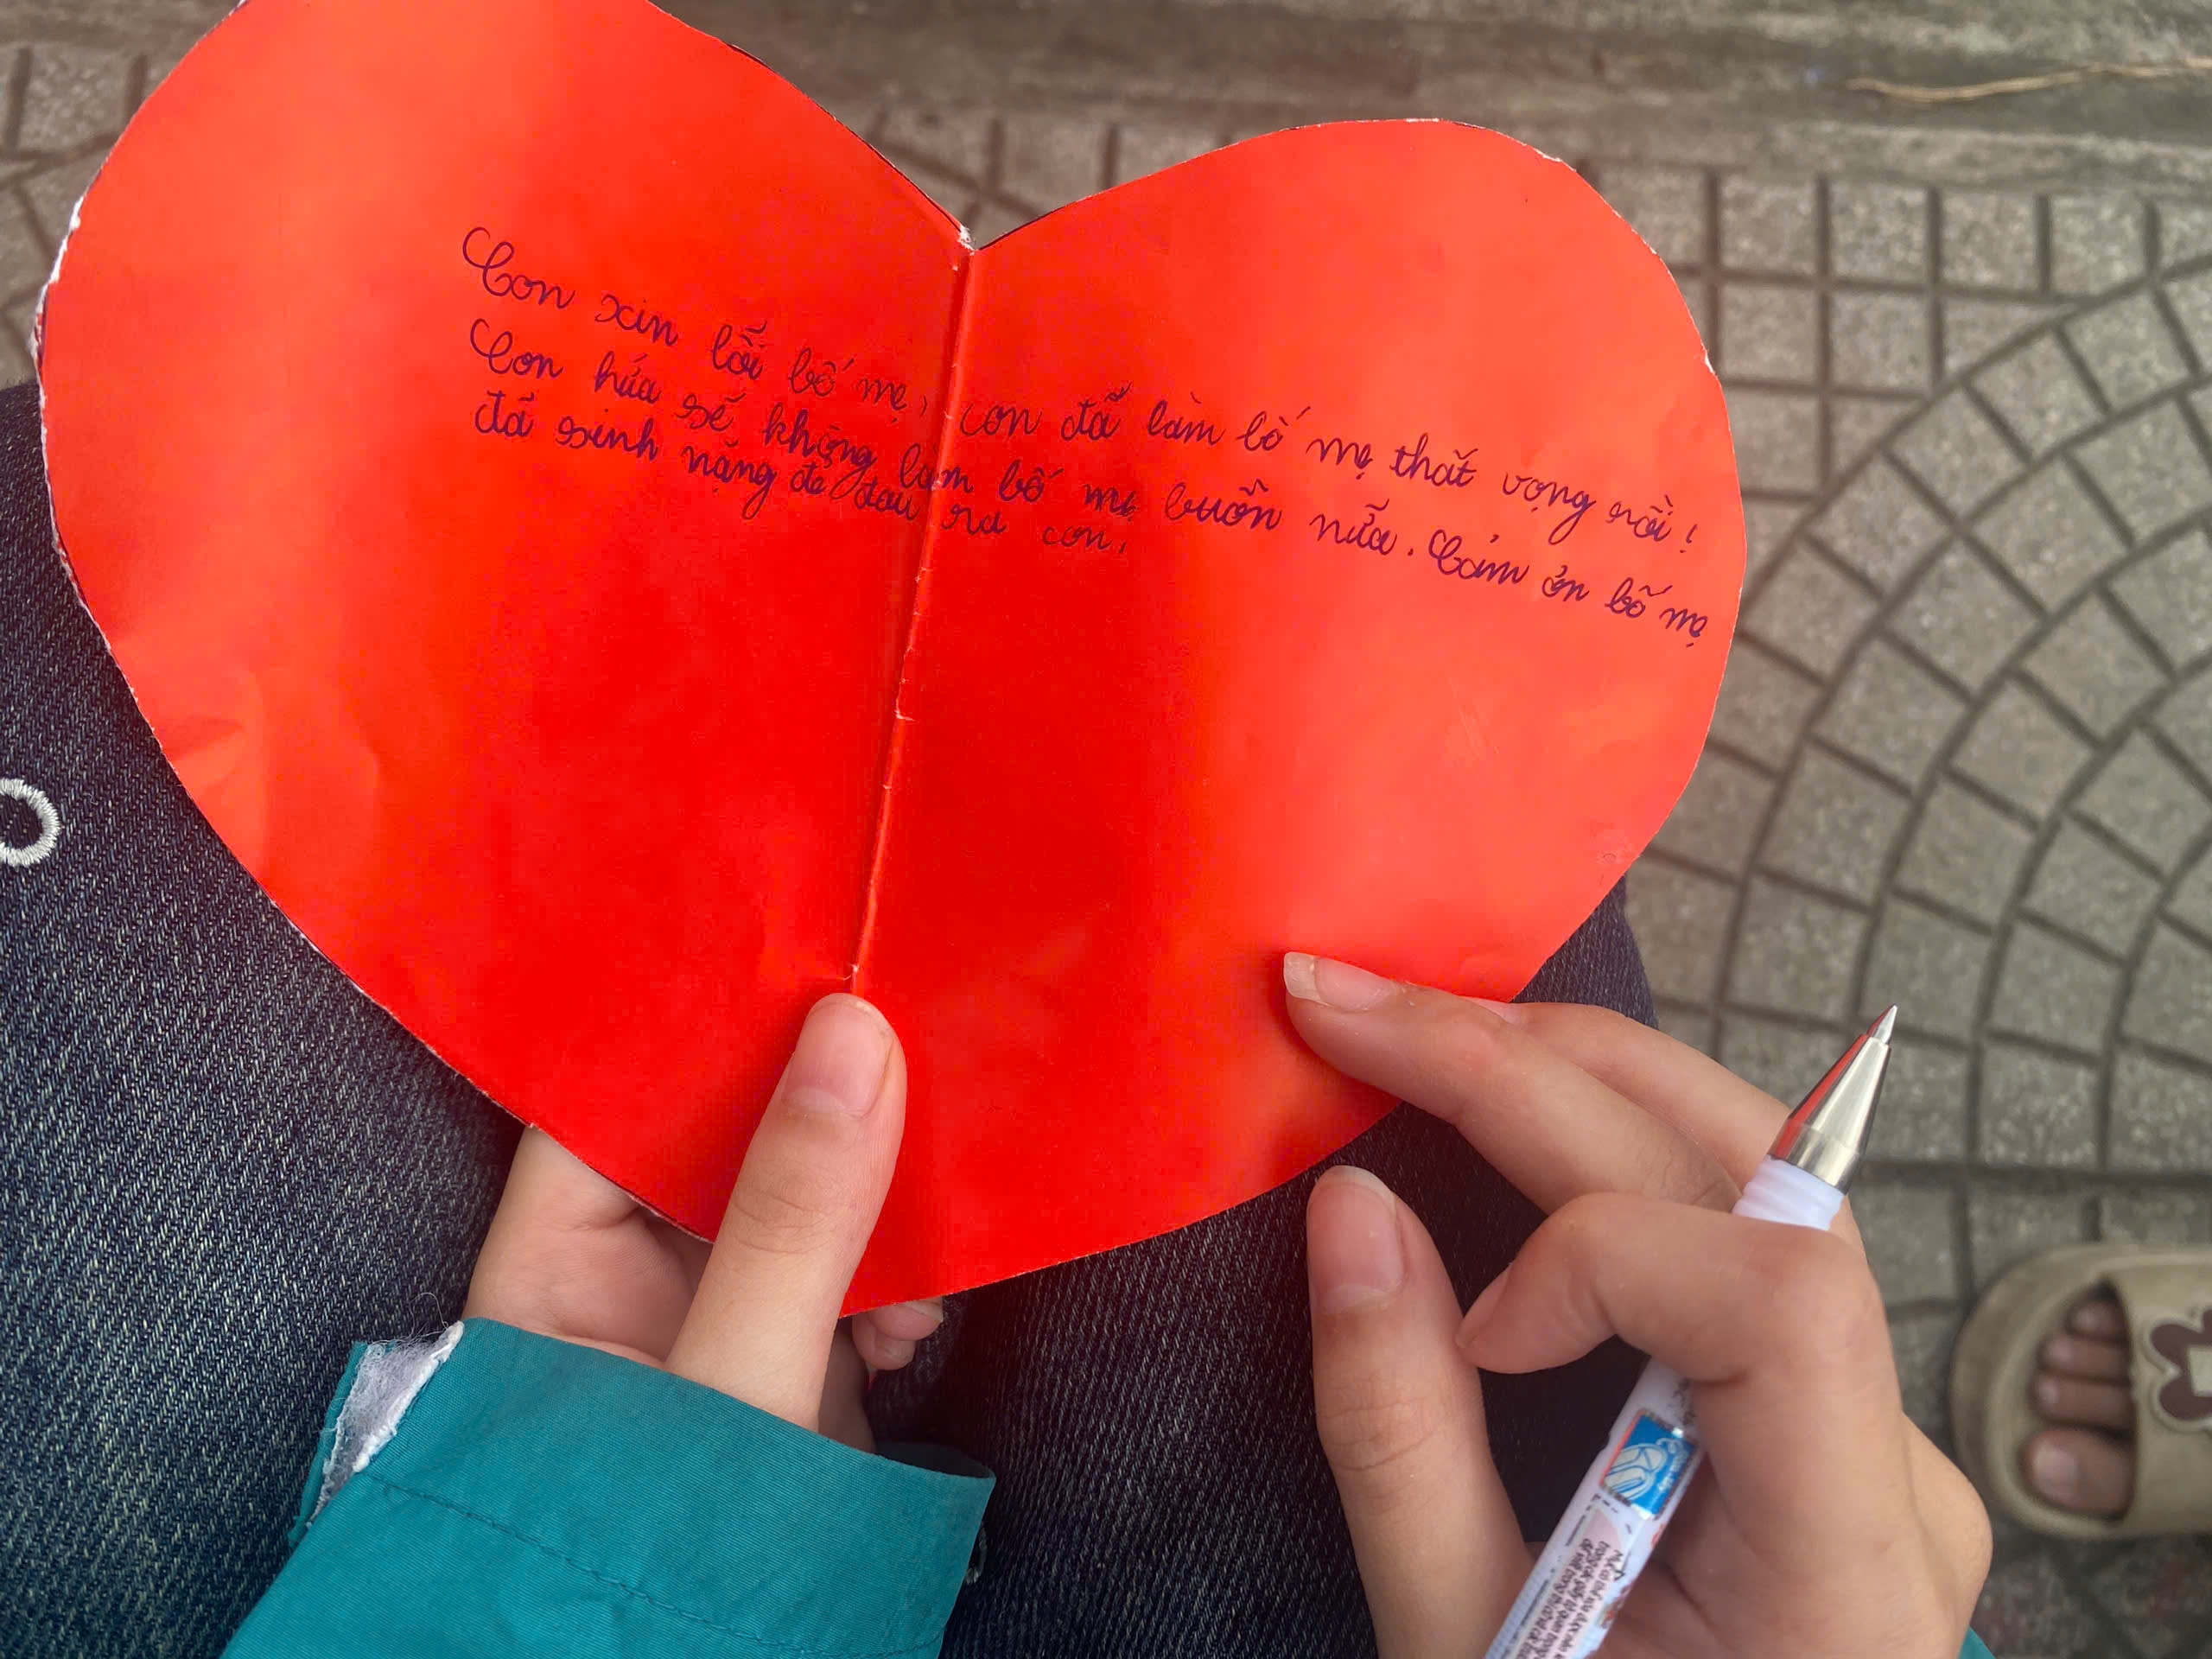 Con xin lỗi bố mẹ, con đã làm bố mẹ thất vọng rồi!
Con hứa sẽ không làm bố mẹ buồn nữa. Cảm ơn bố mẹ
đã sinh nặng đẻ đau ra con.